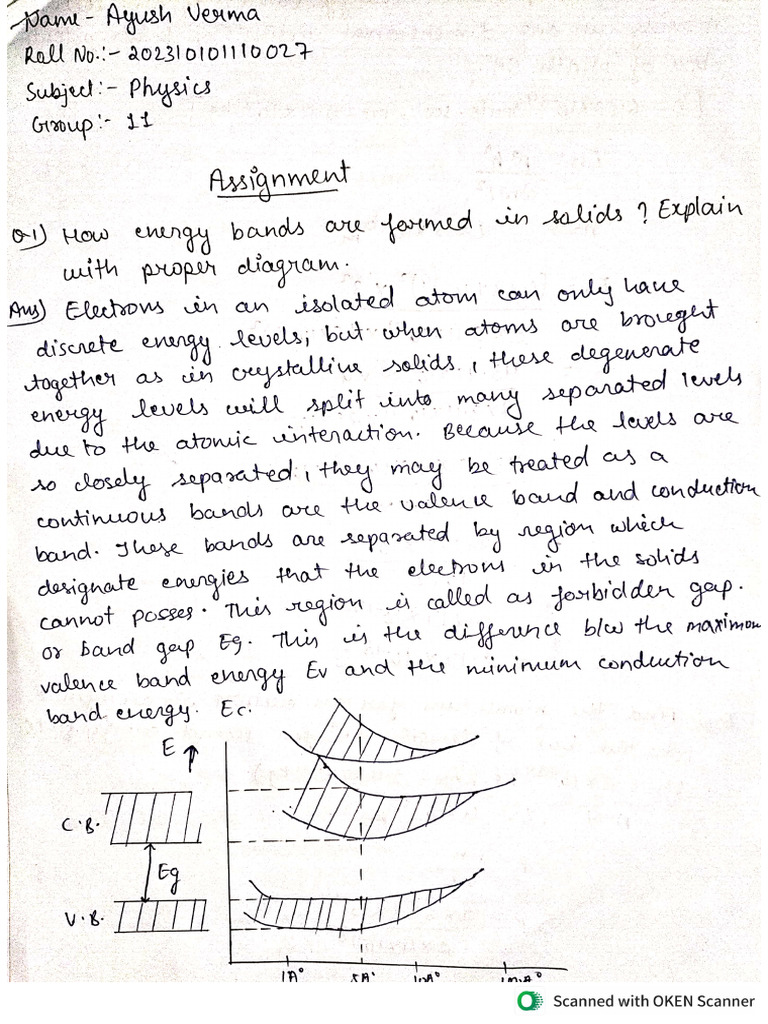 Name - Ayush Verma
Roll No.:- 202310101110027
Subject:- Physics
Group:- 11
Assignment
Q1) How energy bands are formed in solids ? Explain
with proper diagram.
Ans) Electrons in an isolated atom can only have
discrete energy levels, but when atoms are brought
together as in crystalline solids, these degenerate
energy levels will split into many separated levels
due to the atomic interaction. Because the levels are
so closely separated, they may be treated as a
continuous bands are the valence band and conduction
band. These bands are separated by region which
designate energies that the electrons in the solids
cannot posses. This region is called as forbidden gap.
or band gap Eg. This is the difference b/w the maximum
valence band energy Ev and the minimum conduction
band energy. Ec.
E
C.B.
Eg
V.B.
1A° 5A° 10A°
Scanned with OKEN Scanner